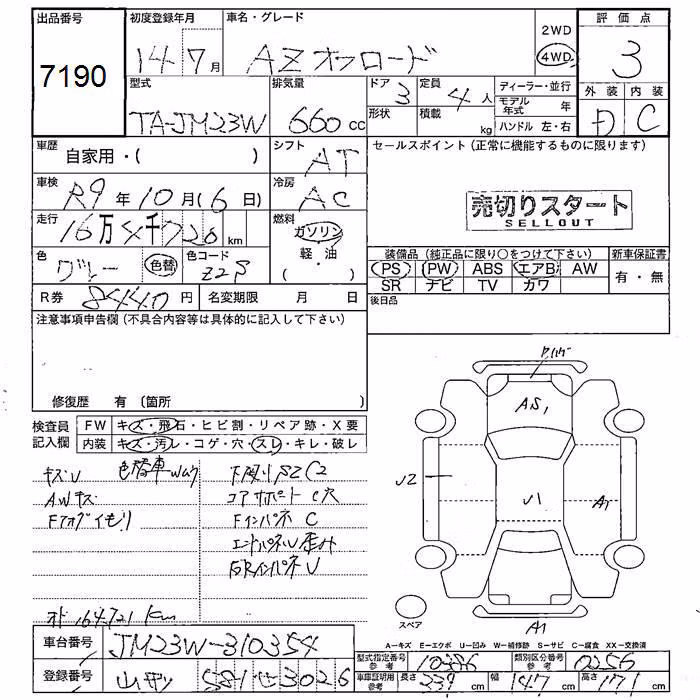 出品番号 初度登録年月 車名・グレード 2WD 評価点
7190 14 7月 AZオフロード 4WD 3
型式 排気量 ドア 定員 ディーラー・並行 外装 内装
TA-JM23W 660cc 3 4人 モデル年式 年 D C
形状 積載 kg ハンドル 左・右
車歴 自家用・( ) シフト AT セールスポイント(正常に機能するものに限ります)
車検 R9年10月(6日) 冷房 AC
売切りスタート
SELLOUT
走行 16万4千720km 燃料 ガソリン
軽・油 ( )
色 グレー 色替 色コード Z2S
装備品(純正品に限り○をつけて下さい) 新車保証書
PS PW ABS エアB AW 有・無
SR ナビ TV カワ
R券 8440円 名変期限 月 日 後日品
注意事項申告欄(不具合内容等は具体的に記入して下さい)
修復歴 有(箇所 )
検査員記入欄 FW キズ・飛石・ヒビ割・リペア跡・X要
内装 キズ・汚レ・コゲ・穴・スレ・キレ・破レ
キズU 色替車
下廻りSC2
AWキズ
コアサポートC穴
Fフォグイモリ
FインパネC
エンドパネU歪み
RインパネU
オド 164721Km
AS1
U2
U1
A1
スペア
A1
A-キズ E-エクボ U-凹み W-補修跡 S-サビ C-腐食 XX-交換済
車台番号 JM23W-310354
型式指定番号 参考 10376 類別区分番号 参考 0256
登録番号 581 3026
車庫証明用 参考 長さ 339cm 幅 147cm 高さ 171cm